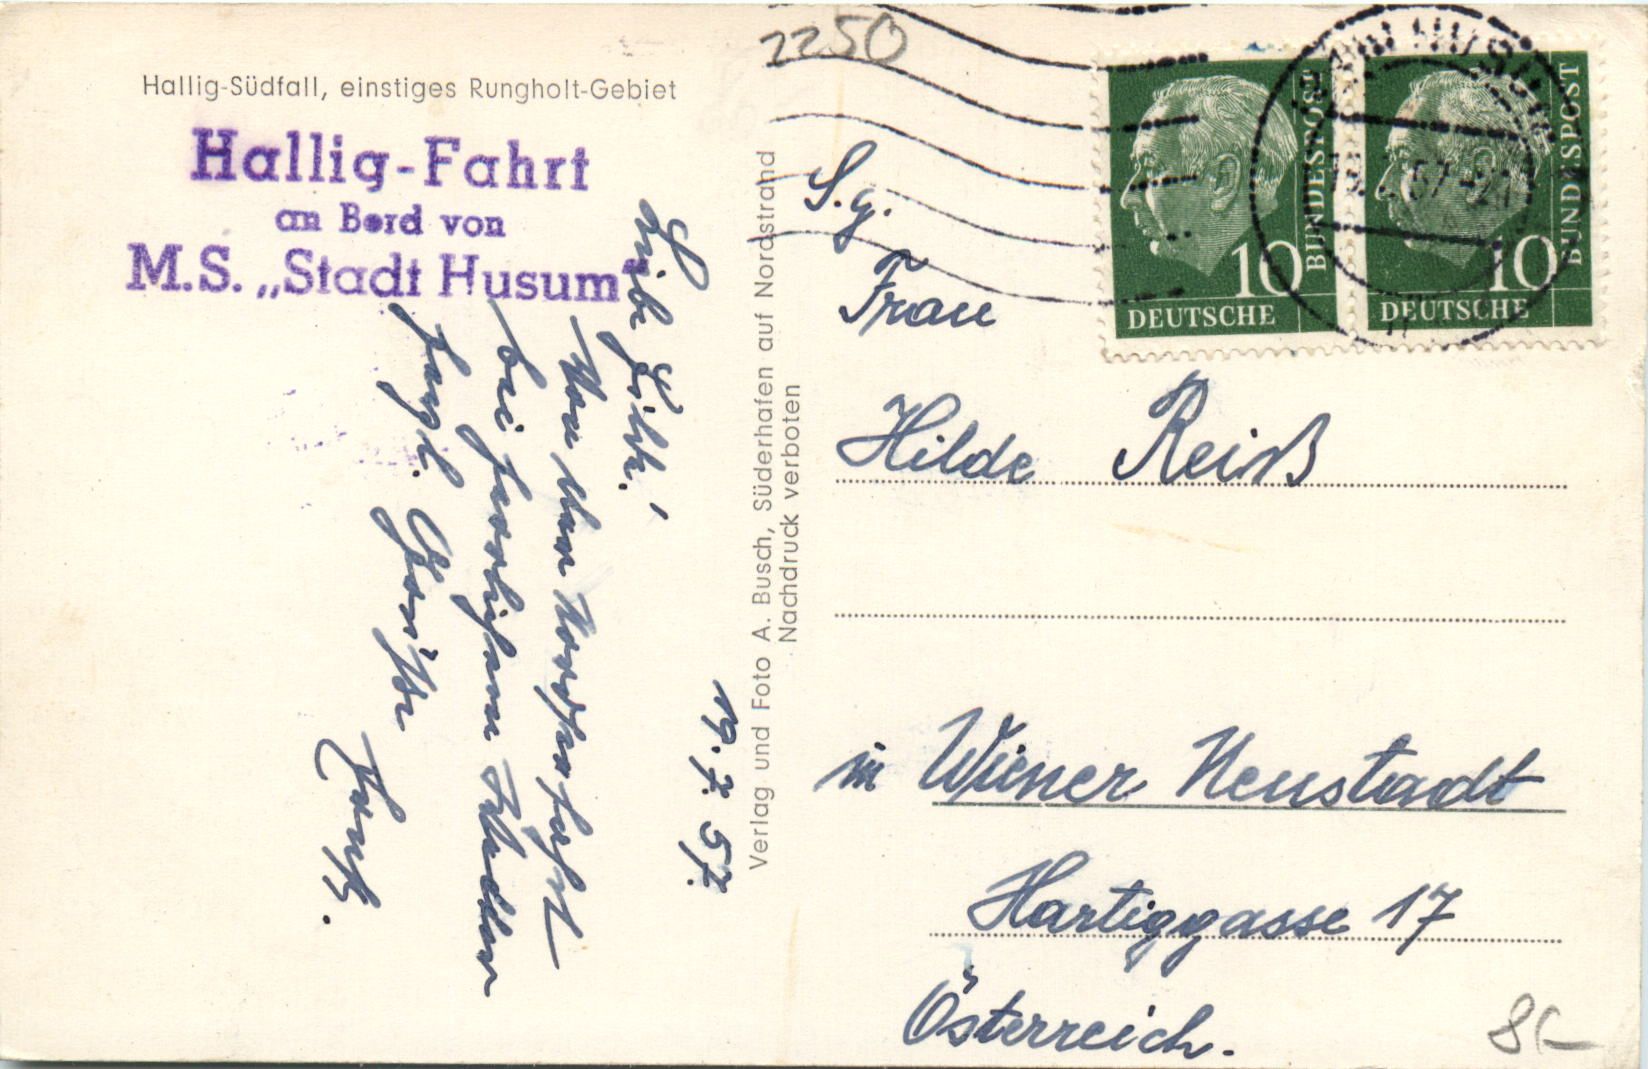 2250
Hallig-Südfall, einstiges Rungholt-Gebiet
Hallig-Fahrt
an Bord von
M.S. „Stadt Husum"
Verlag und Foto A. Busch, Süderhafen auf Nordstrand
Nachdruck verboten
19.7.57.
Von
bei herrlichem Wetter
herzl. Grüße
DEUTSCHE BUNDESPOST 10
DEUTSCHE BUNDESPOST 10
S.g.
Frau
Hilde Reiß
in Wiener Neustadt
Hartiggasse 17
Österreich.